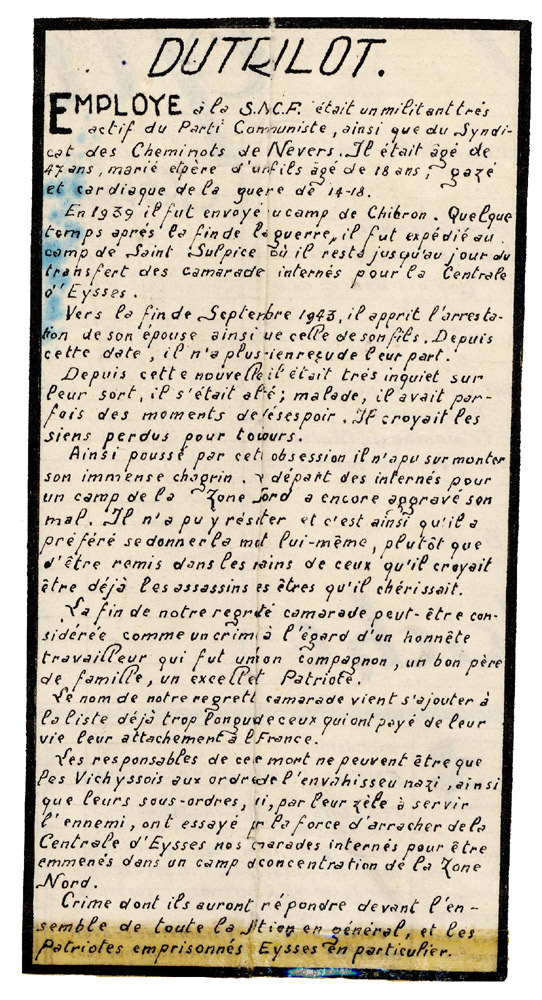 DUTRILOT.
EMPLOYE à la S.N.C.F. était un militant trés
actif du Parti Communiste, ainsi que du Syndi-
cat des Cheminots de Nevers. Il était âgé de
47 ans, marié et père d'un fils âgé de 18 ans; gazé
et cardiaque de la guere de 14-18.
En 1939 il fut envoyé u camp de Chibron. Quelque
temps aprés la fin de la guerre, il fut expédié au
camp de Saint Sulpice où il resta jusqu'au jour du
transfert des camarade internés pour la Centrale
d'Eysses.
Vers la fin de Septembre 1943, il apprit l'arresta-
tion de son épouse ainsi ue celle de son fils. Depuis
cette date, il n'a plus ien reçu de leur part.
Depuis cette nouvelle il était trés inquiet sur
leur sort, il s'était alté; malade, il avait par-
fois des moments de désespoir. Il croyait les
siens perdus pour toujours.
Ainsi poussé par cett obsession il n'a pu surmonter
son immense chagrin. e départ des internés pour
un camp de la Zone Nord a encore aggravé son
mal. Il n'a pu y résiter et c'est ainsi qu'il a
préféré se donner la mot lui-même, plutôt que
d'être remis dans les mains de ceux qu'il croyait
être déjà les assassins es êtres qu'il chérissait.
La fin de notre regrété camarade peut-être con-
sidérée comme un crim à l'égard d'un honnête
travailleur qui fut un bon compagnon, un bon père
de famille, un excellet Patriote.
Le nom de notre regrett camarade vient s'ajouter à
la liste déjà trop longu de ceux qui ont payé de leur
vie leur attachement à l France.
Les responsables de cee mort ne peuvent être que
les Vichyssois aux ordres de l'envahisseu nazi, ainsi
que leurs sous-ordres, ui, par leur zèle à servir
l'ennemi, ont essayé pr la force d'arracher de la
Centrale d'Eysses nos camarades internés pour être
emmenés dans un camp d concentration de la Zone
Nord.
Crime dont ils auront répondre devant l'en-
semble de toute la Ntion en général, et les
Patriotes emprisonnés Eysses en particulier.